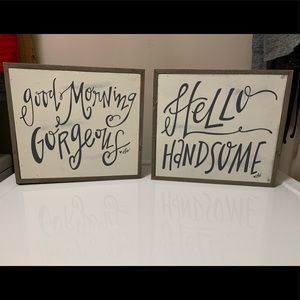 good Morning
Gorgeous
Hello
Handsome